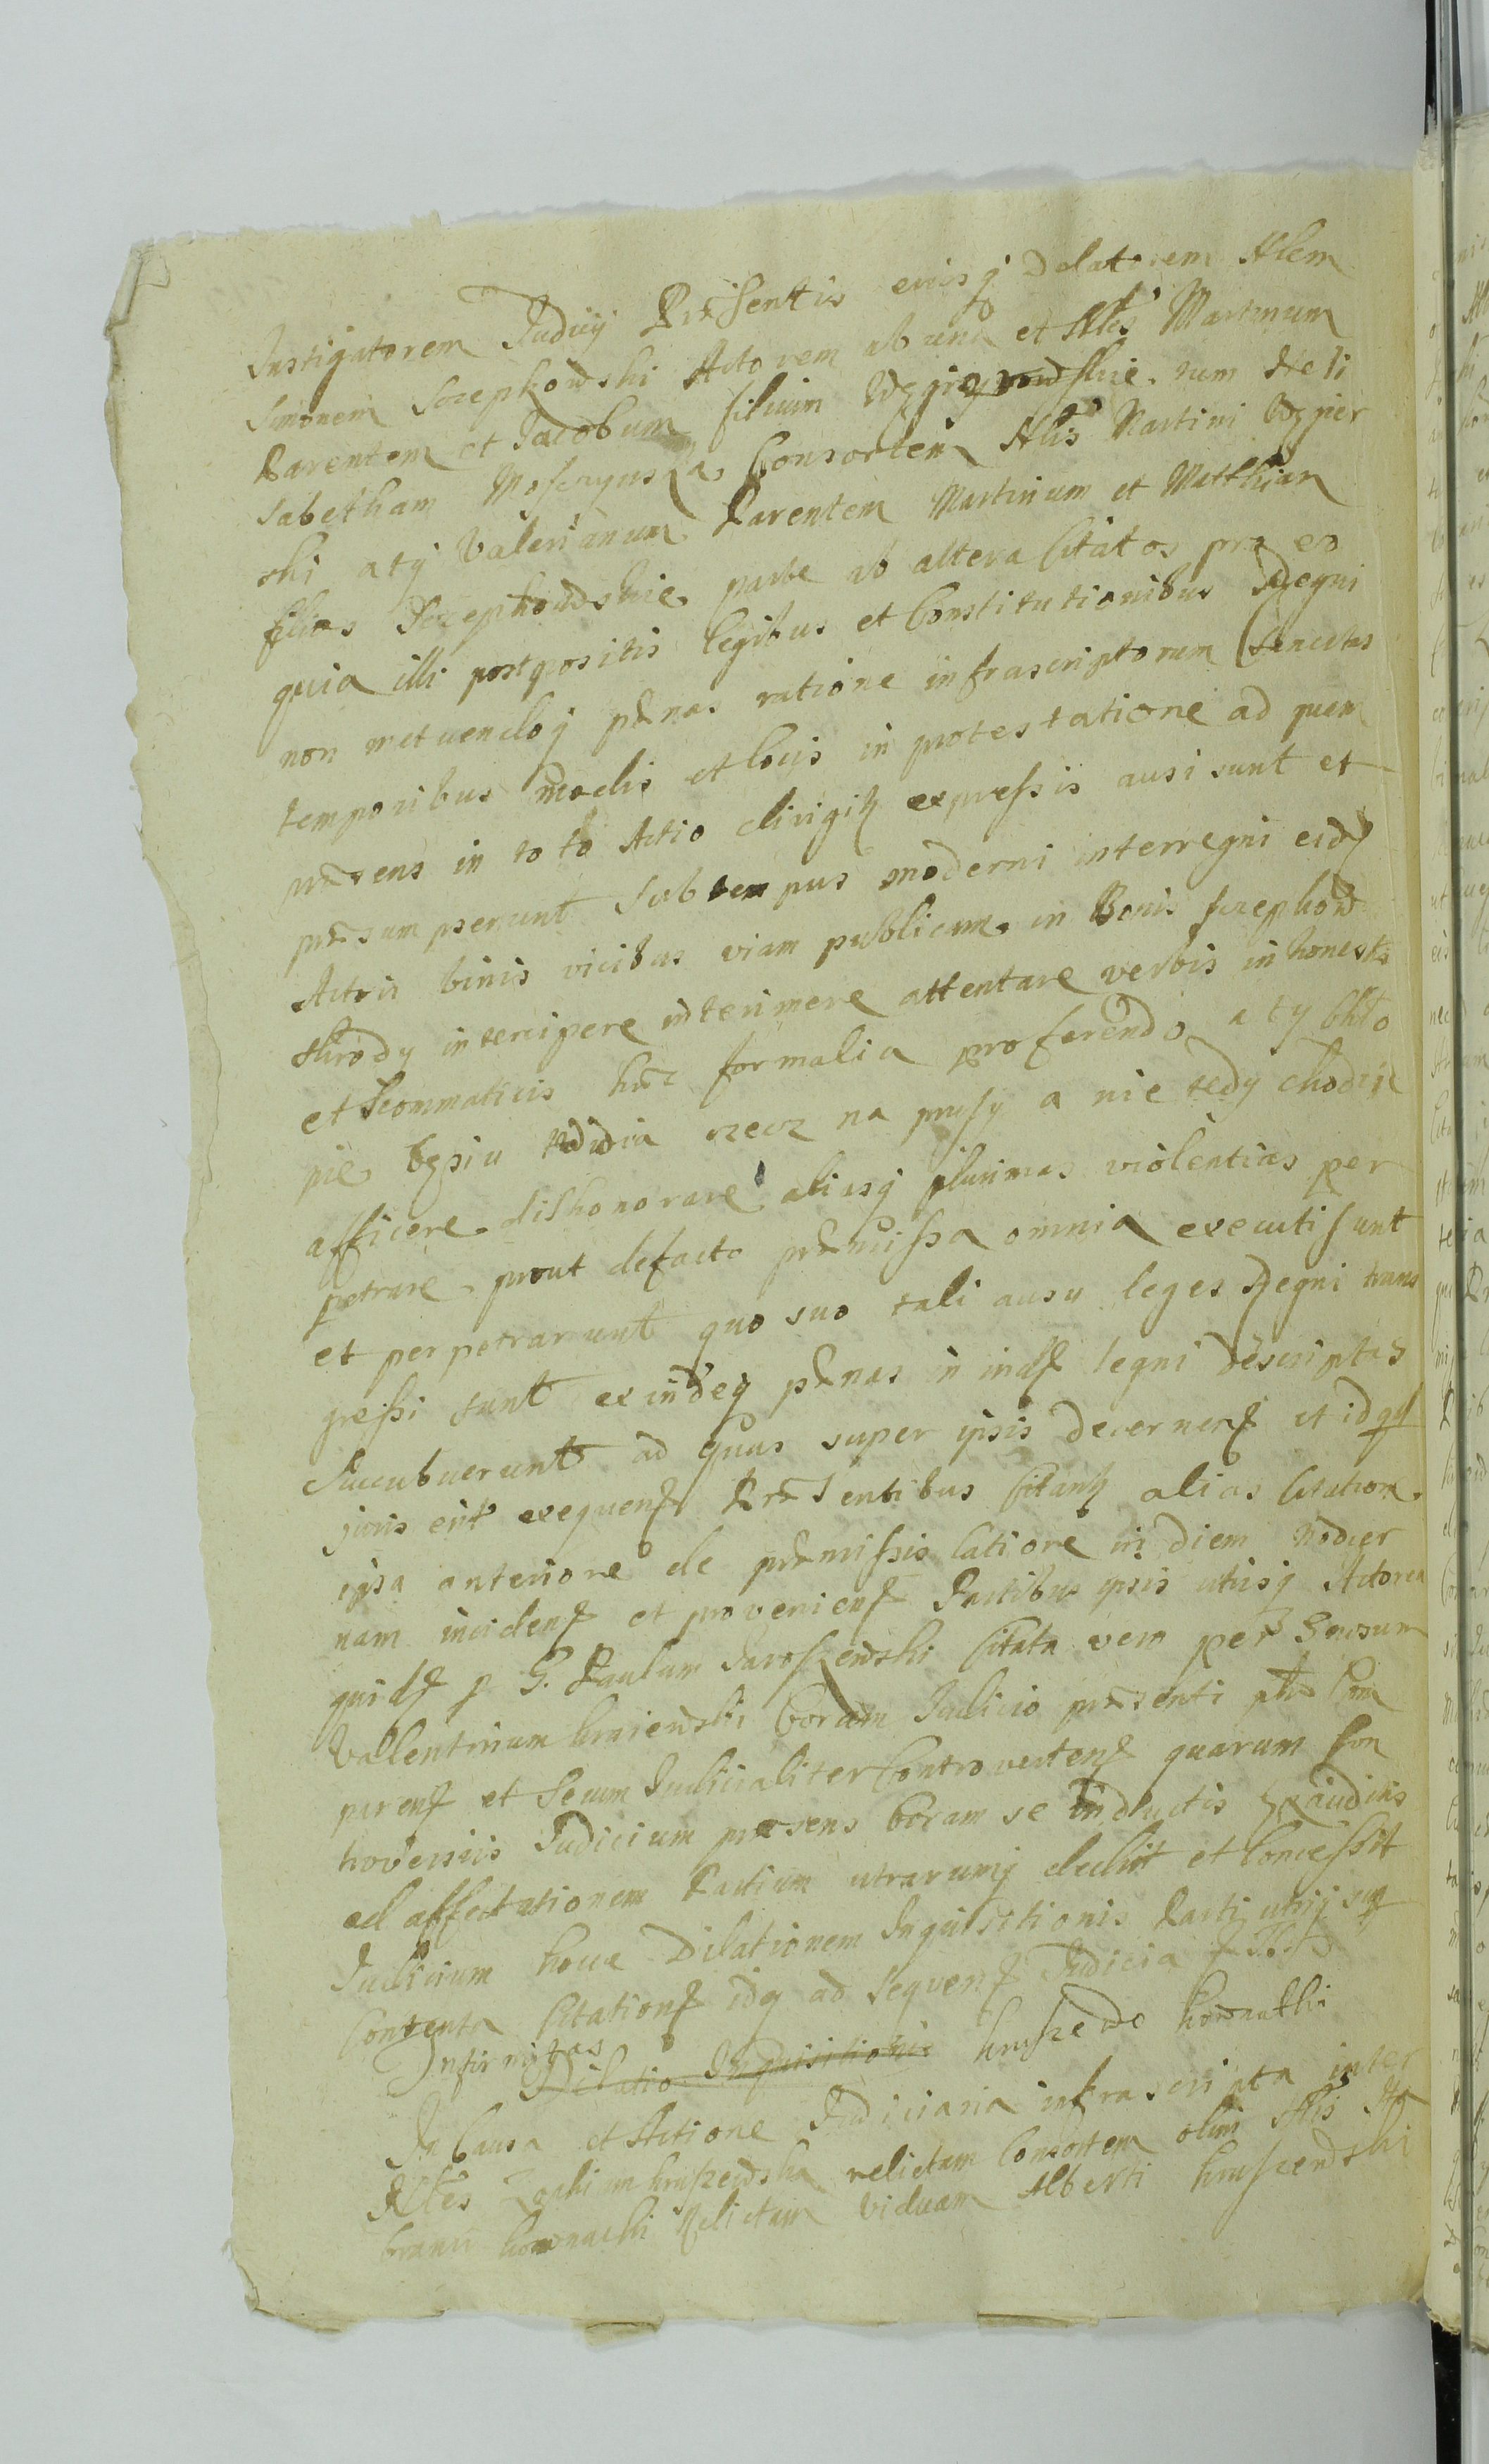 Instigatorem Judicij Præsentis eiusq Delatorem Nlem
Simonem Szepkowski Actorem ab una et Nles Martinum
Parentem et Jacobum filium Węgierowskie. tum Heli
sabetham Consortem Nlis Martini Węgier
ski atq Valerianum Parentem Martinum et Matthiam
filios Szepkowskie parte ab altera Citatos pro eo
quia illi postpositis legibus et Constitutionibus Regni
non metuendoq pænas ratione infrascriptorum Sancitas
temporibus modis et locis in protestatione ad quam
præsens in toto Actio dirigit expressis ausi sunt et
præsumpserunt sub tempus moderni interregni eid
Actori binis vicibus viam publicam in Bonis szepkow
skirody intercipere interimere attentare verbis inhonestis
et Scommaticis hæc formalia proferendo a ty Chło
pie na a nie tedy chodzic
afficere dishonorare aliasq plurimas violentias per
petrare prout defacto præmissa omnia executi sunt
et perpetrarunt quo suo tali ausu leges Regni trans
gressi sunt exindeq pænas in ind legni descriptas
Succubuerunt ad quas super ipsis decernend et idq
juris erit exequend Præsentibus Citant alias Citatione
ipsa anteriore de præmissis latiore in diem hodier
nam incident et provenient Partibus ipsis utrisq Actorea
quid p G. Paulum Jaroszewski Citata vero per Gnosum
Valentinum kraiewski Coram Judicio præsenti pto Com
parent et Secum Judicialiter Controvertent quarum Con
troversiis Judicium præsens Coram se inductis exauditis
ad affectationem Partium utrarumq dedit et Concessit
Judicium hocce Dilationem Inquisitionis Parti utriq sup
Contenta Citation idq ad sequent Judicia
Infirmitas
Dilatio Inquisitionis kruszewo kownackie
In Causa et Actione Judiciaria infrascripta inter
Nles Zophiam kruszewska relictam Consortem olim Nlis
kownacki Relictam viduam Alberti kruszewski